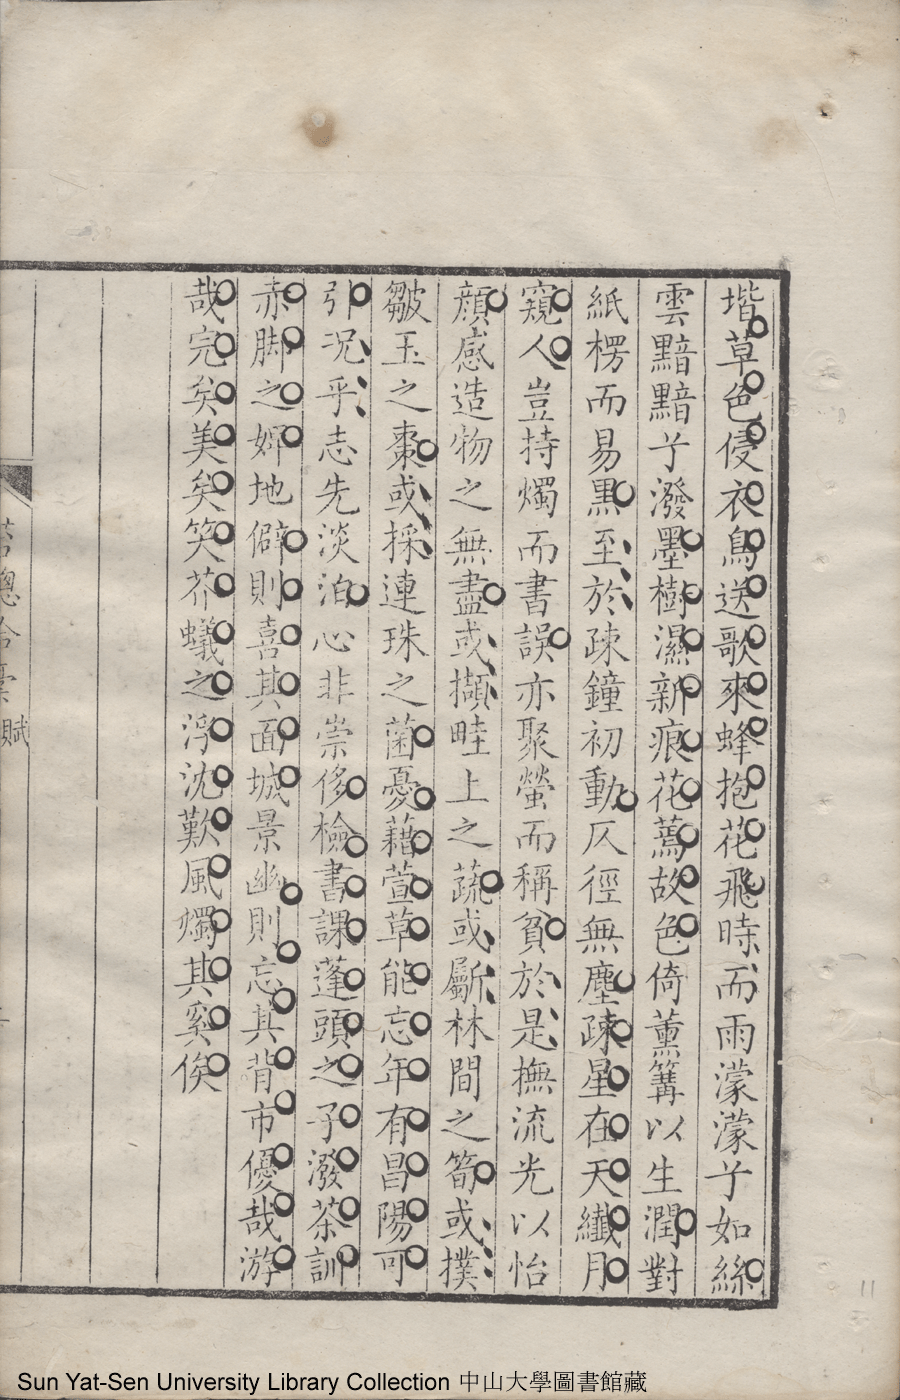 堦草色侵衣鳥送歌來蜂抱花飛時而雨濛濛子如絲
雲黯黯子潑墨樹濕新痕花蔫故色倚薰篝以生潤對
紙楞而易黑至於疎鐘初動仄徑無塵疎星在天纖月
窺人豈持燭而書誤亦聚螢而稱貧於是撫流光以怡
顏感造物之無盡或擷畦上之蔬或斸林間之筍或撲
皺玉之棗或採連珠之菌憂藉萱草能忘年有昌陽可
引况乎志先淡泊心非崇侈檢書課蓬頭之子潑茶訓
赤脚之婢地僻則喜其面城景幽則忘其背市優哉游
哉完矣美矣笑芥蟻之浮沈歎風燭其奚俟
賦
Sun Yat-Sen University Library Collection 中山大學圖書館藏
11